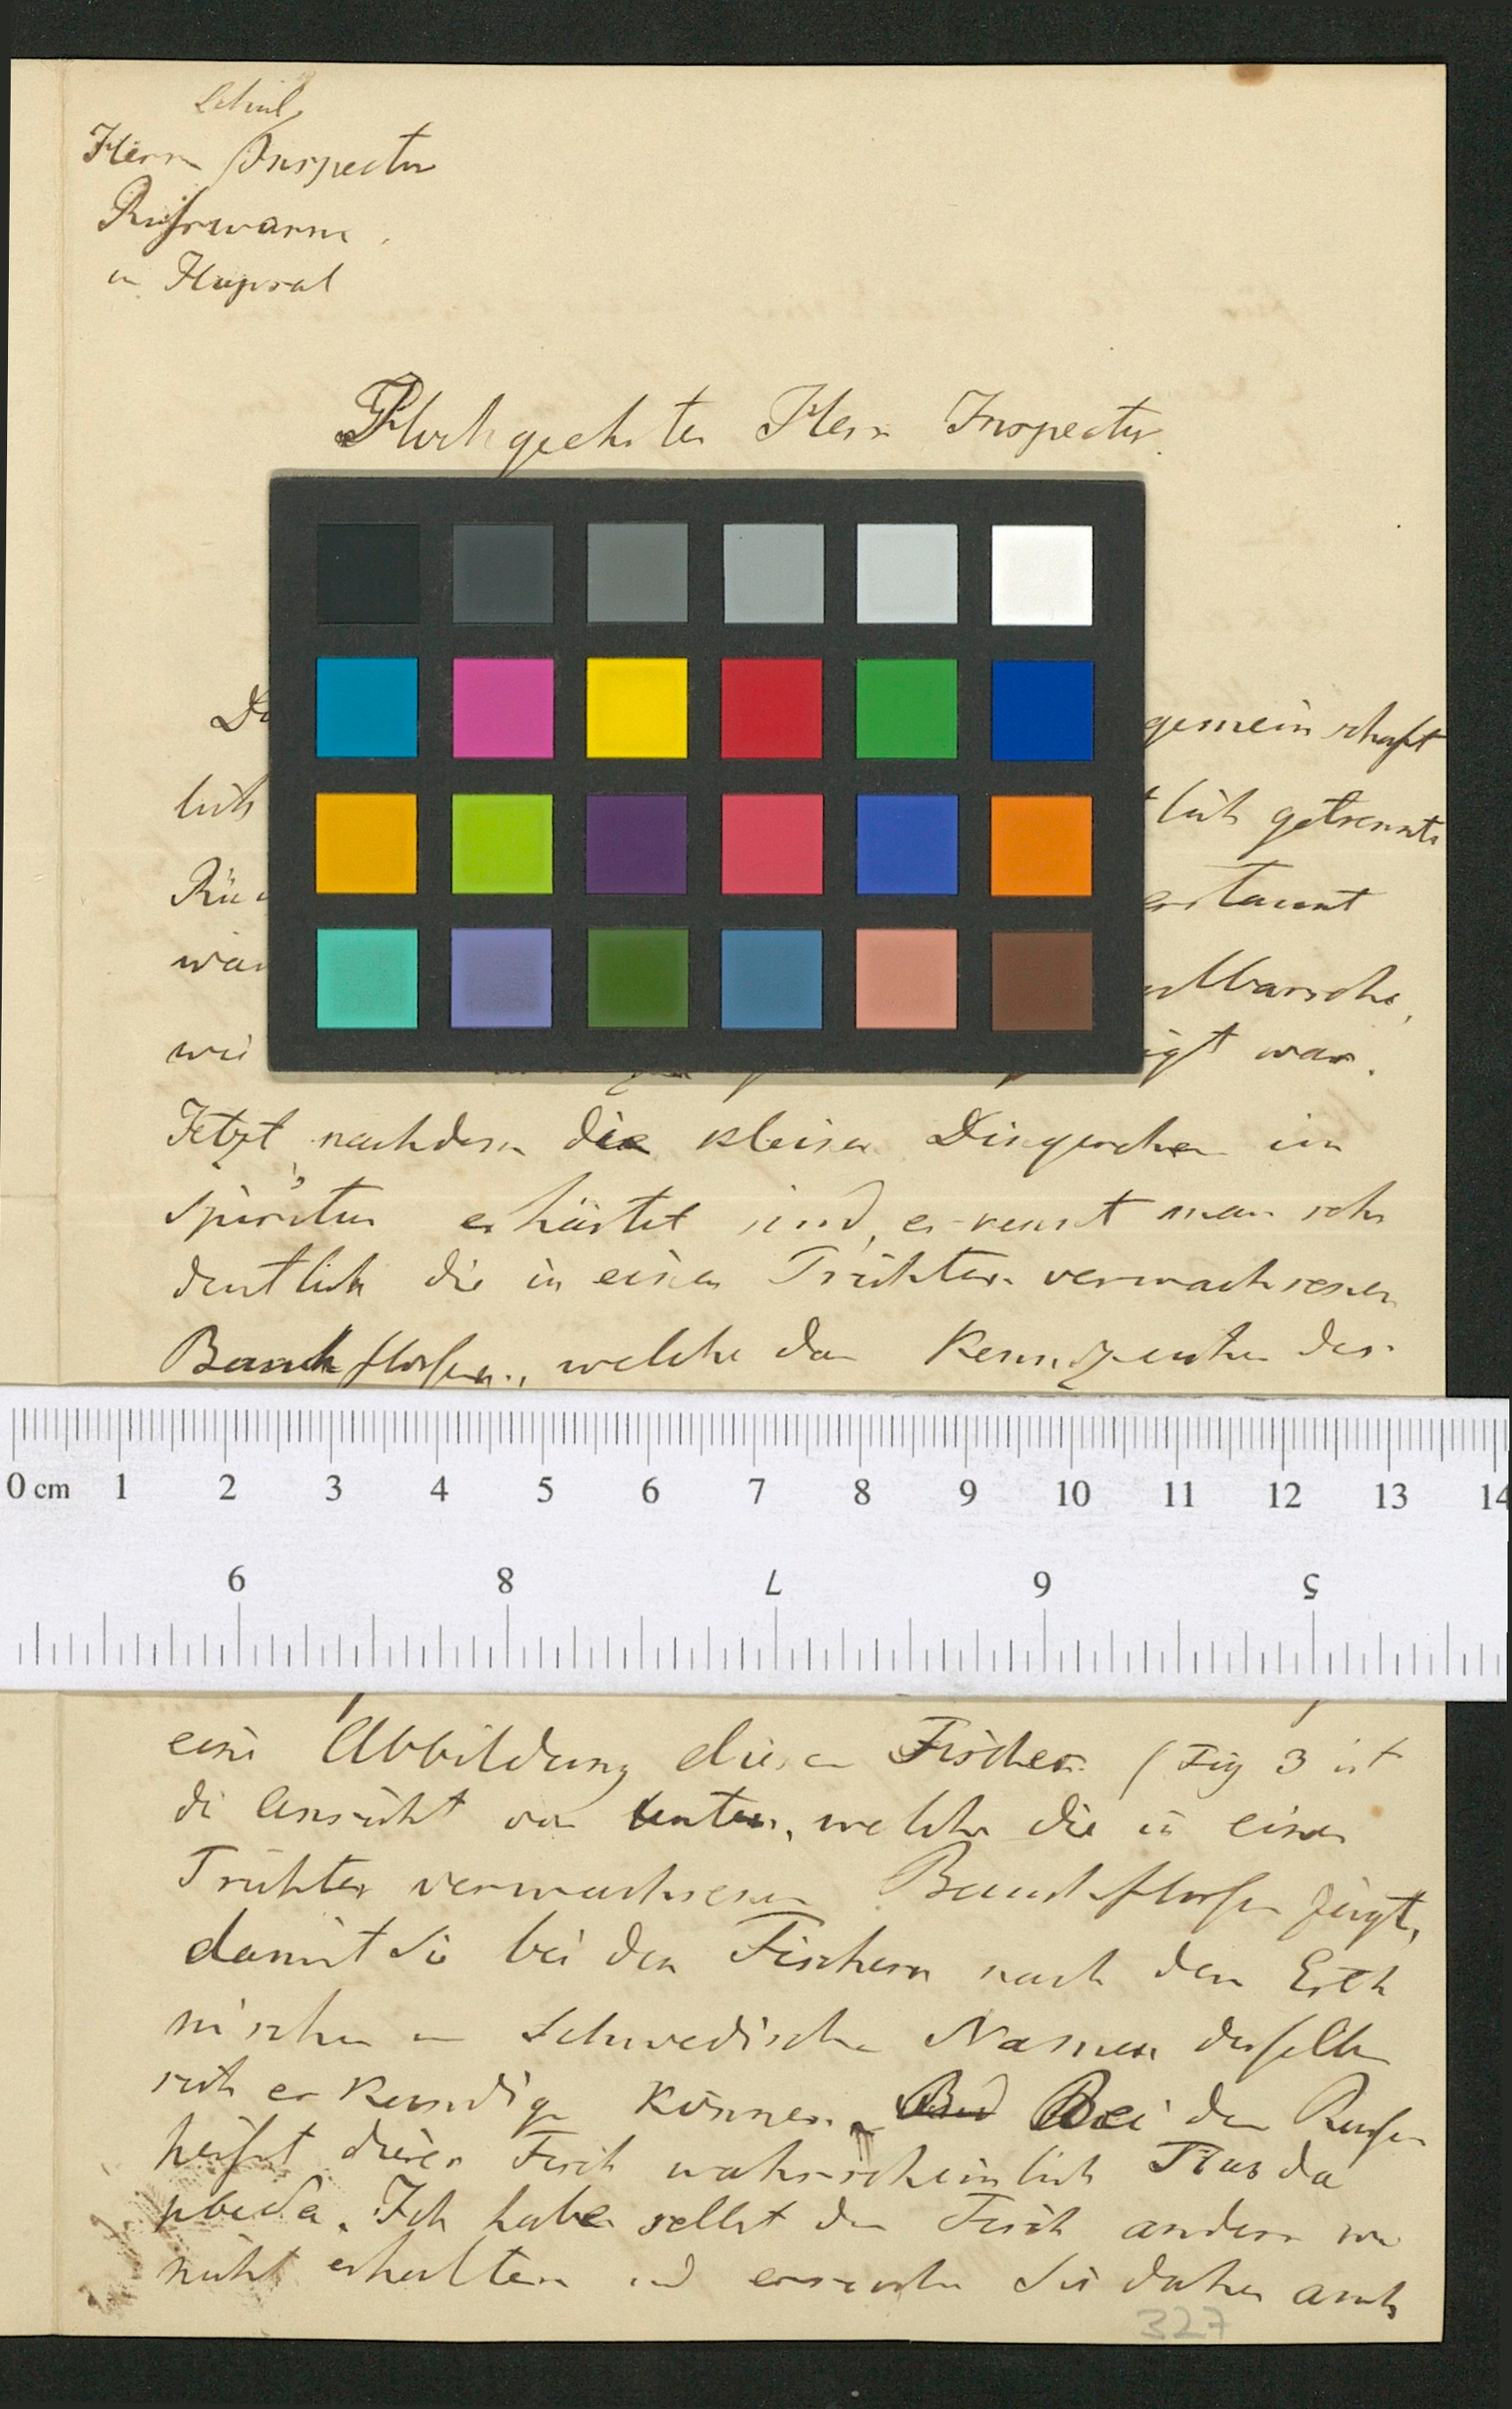 Schul
Herrn Inspector
Russwurm
in Hapsal
Hochgeehrter Herr Inspector.
gemeinschaft
lich lich getrennte
erstaunt
wie war.
Jetzt, nachdem die kleinen Dingerchen im
Spiritus erhärtet sind, erkennt man sehr
deutlich die in einen Trichter verwachsenen
Bauchflossen, welche das Kennzeichen der
0 cm 1 2 3 4 5 6 7 8 9 10 11 12 13 14
9 8 7 6 5
eine Abbildung dieser Fische (Fig 3 ist
die Ansicht von unten, welche die in einen
Trichter verwachsenen Bauchflossen zeigt,
damit Sie bei den Fischern nach dem Esth
nischen Schwedischen Namen desselben
sich erkundigen können. Bei den Russen
heißt dieser Fisch wahrscheinlich
Ich habe selbst den Fisch anders wo
nicht erhalten und ersuche Sie daher auch
327